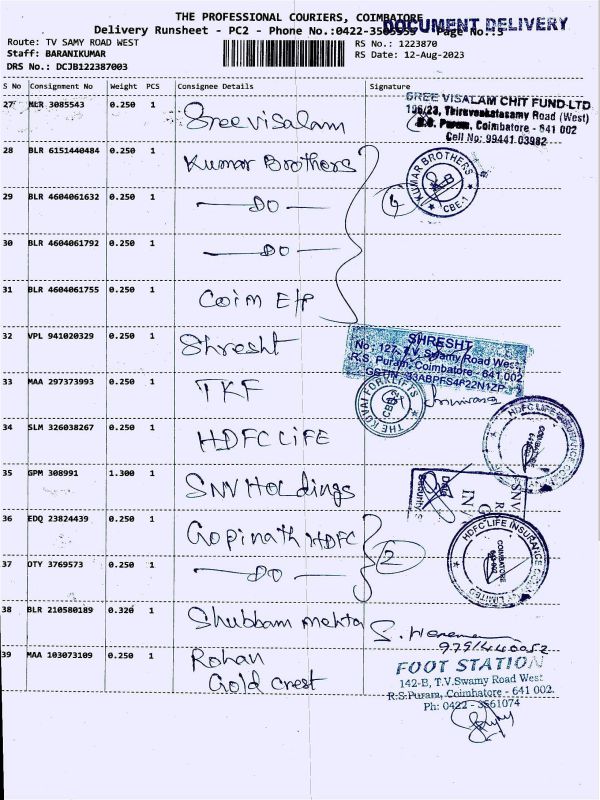 THE PROFESSIONAL COURIERS, COIMBATORE
DOCUMENT DELIVERY
Delivery Runsheet - PC2 - Phone No.:0422- Page No.:3
Route: TV SAMY ROAD WEST
RS No.: 1223870
Staff: BARANIKUMAR
RS Date: 12-Aug-2023
DRS No.: DCJB122387003
S No Consignment No Weight PCS Consignee Details Signature
27 MLR 3085543 0.250 1 Sree Visalam
SREE VISALAM CHIT FUND-LTD
196/23, Thiruvenkatasamy Road (West)
R.S. Puram, Coimbatore - 641 002
Cell No: 99441 03982
28 BLR 6151440484 0.250 1 Kumar Brothers
KUMAR BROTHERS
CBE-1
29 BLR 4604061632 0.250 1 — DO —
4
30 BLR 4604061792 0.250 1 — DO —
31 BLR 4604061755 0.250 1 Coim E/P
32 VPL 941020329 0.250 1 Shresht
SHRESHT
No : 127, T.V. Swamy Road West,
R.S. Puram, Coimbatore - 641 002
GSTIN : 33ABPFS4P22N1ZP
33 MAA 297373993 0.250 1 TKF
THE KOVAI FORKLIFTS
CBE
34 SLM 326038267 0.250 1 HDFC LIFE
HDFC LIFE INSURANCE COMPANY LIMITED
COIMBATORE
35 GPM 308991 1.300 1 SNV Holdings
SNV
Date
Security
36 EDQ 23824439 0.250 1 Gopinath HDFC
HDFC LIFE INSURANCE COMPANY LIMITED
COIMBATORE
2
37 OTY 3769573 0.250 1 — DO —
38 BLR 210580189 0.320 1 Shubbam mehta
39 MAA 103073109 0.250 1 Rohan
Gold Crest
FOOT STATION
142-B, T.V.Swamy Road West
R.S.Puram, Coimbatore - 641 002.
Ph: 0422 - 3561074